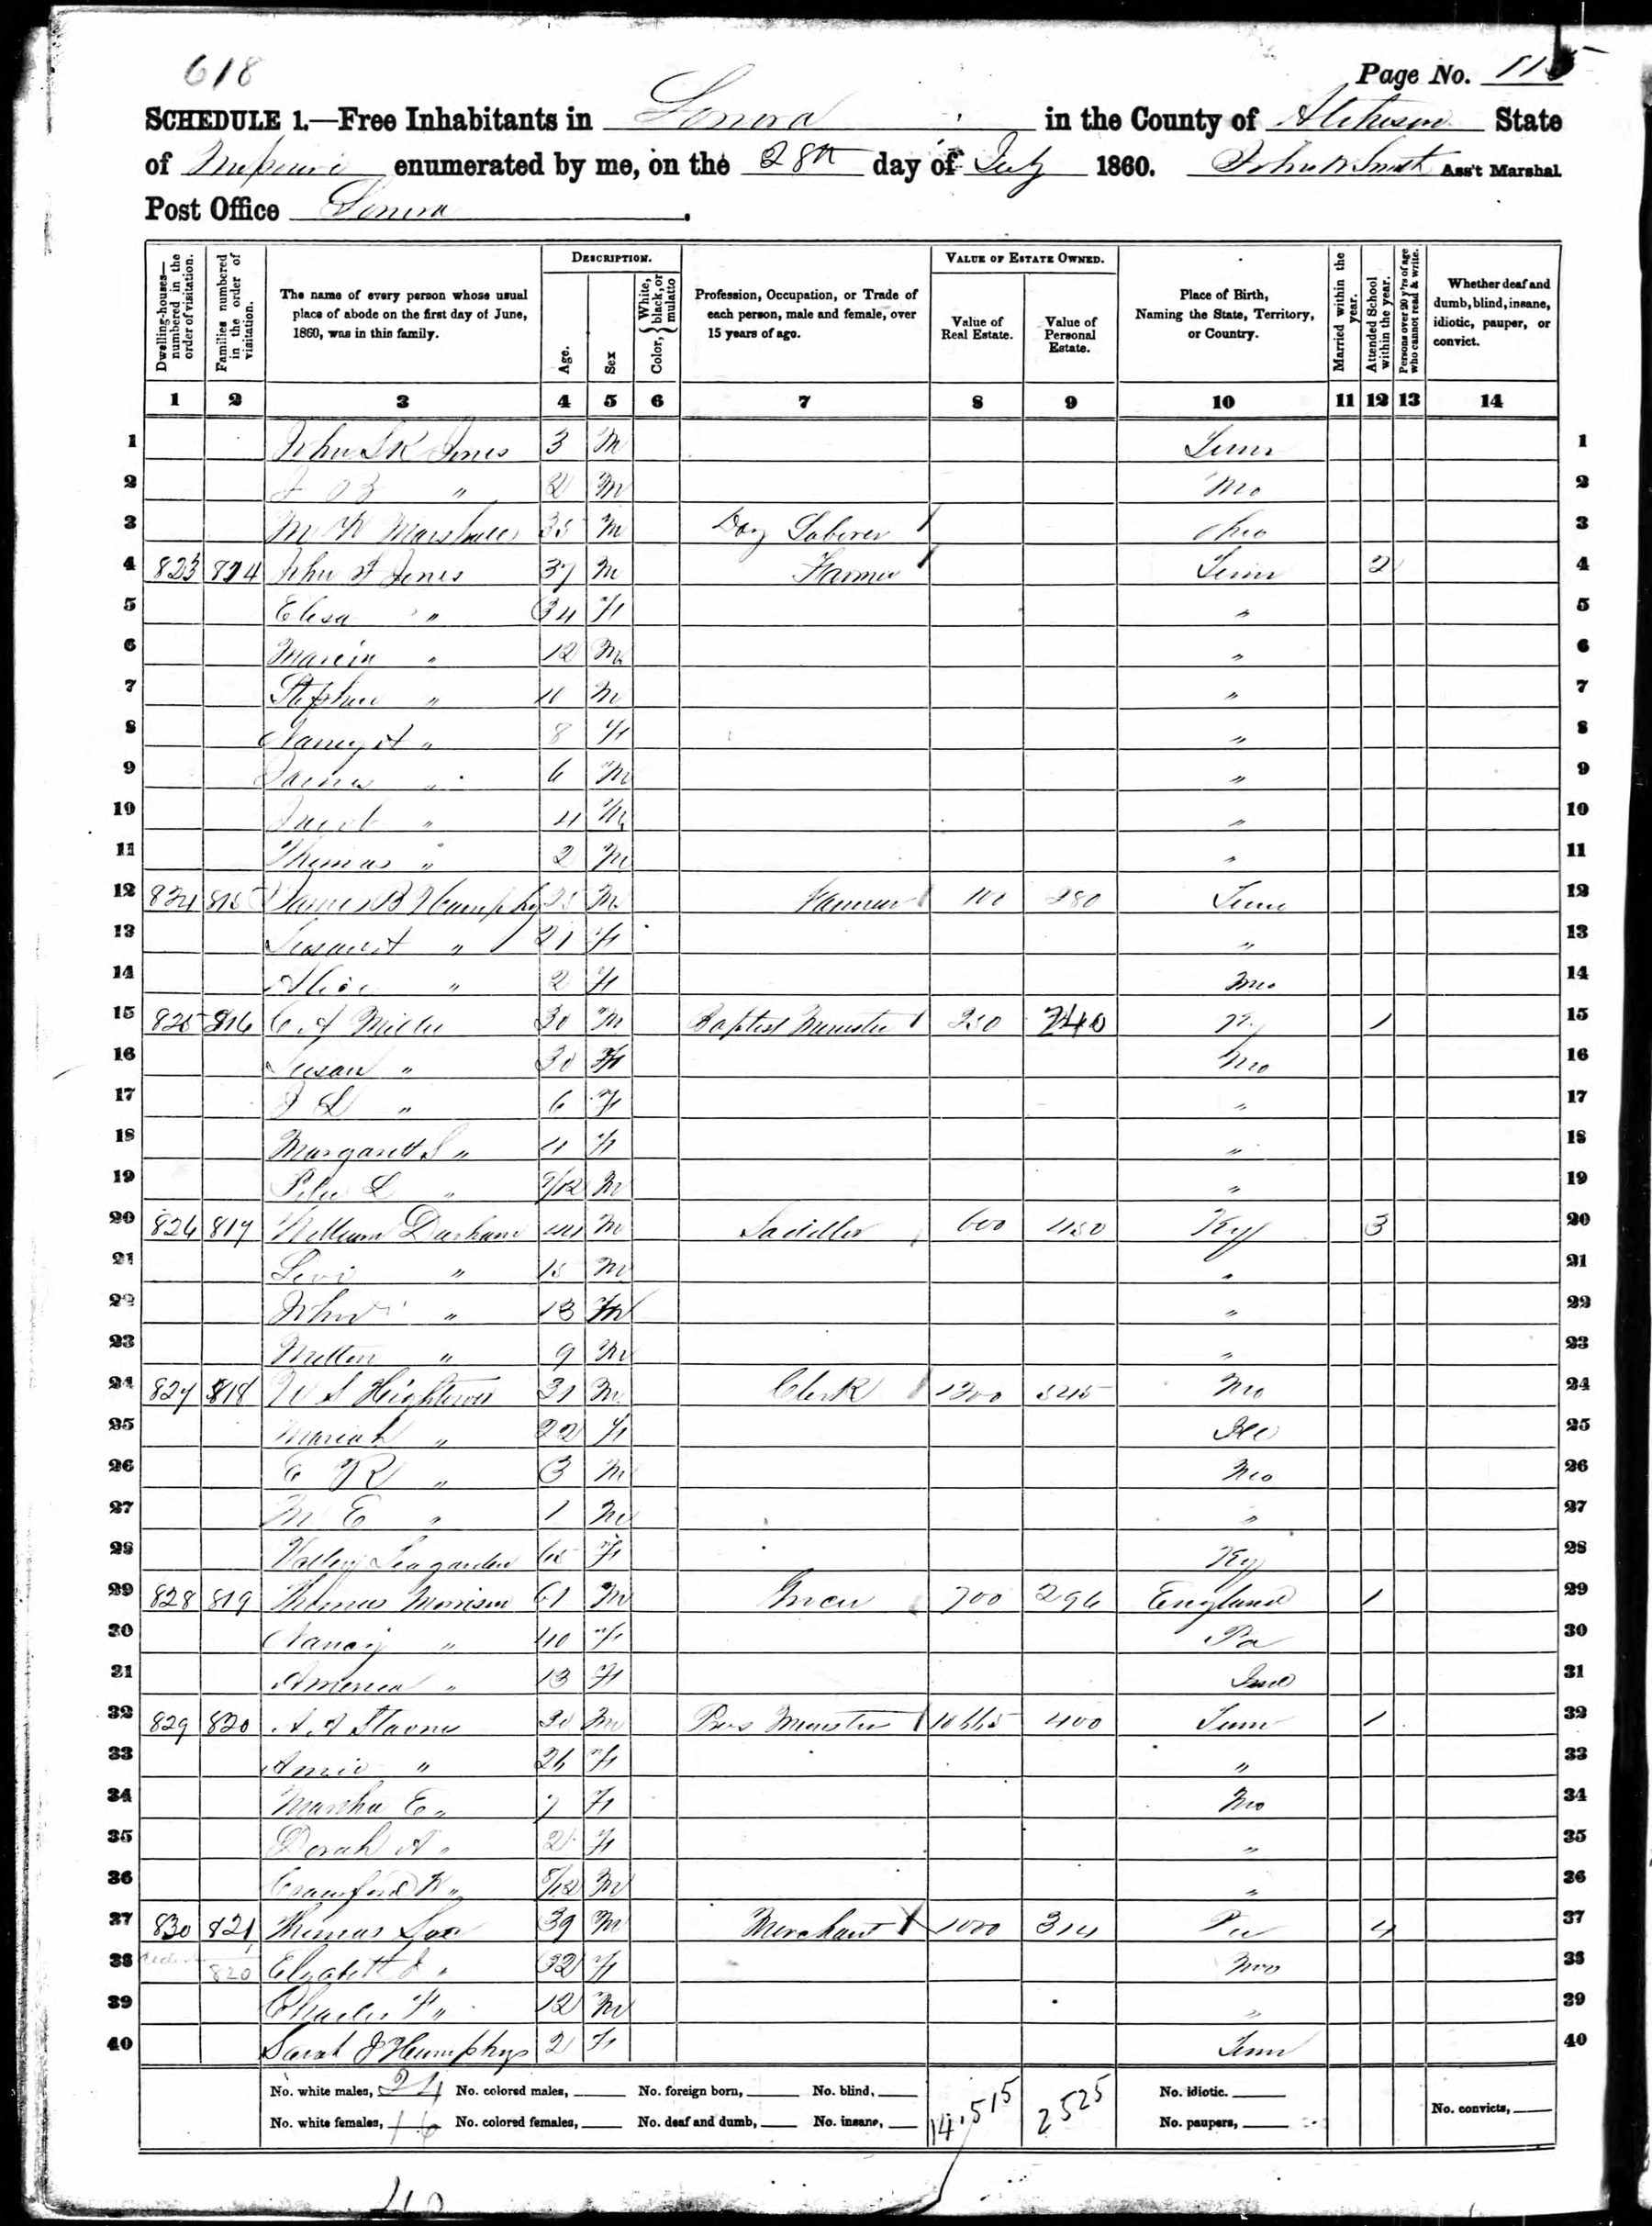 618
Page No. 115
SCHEDULE 1.—Free Inhabitants in Sonora in the County of Atchison State
of Missouri enumerated by me, on the 28th day of July 1860. John W Smith Ass't Marshal
Post Office Sonora.
DESCRIPTION. VALUE OF ESTATE OWNED.
Dwelling-houses—numbered in the order of visitation. Families numbered in the order of visitation. The name of every person whose usual place of abode on the first day of June, 1860, was in this family. Age. Sex Color, White, black, or mulatto Profession, Occupation, or Trade of each person, male and female, over 15 years of age. Value of Real Estate. Value of Personal Estate. Place of Birth, Naming the State, Territory, or Country. Married within the year. Attended School within the year. Persons over 20 y'rs of age who cannot read & write. Whether deaf and dumb, blind, insane, idiotic, pauper, or convict.
1 2 3 4 5 6 7 8 9 10 11 12 13 14
1 John S K Jones 3 M Tenn 1
2 J " 2 M Mo 2
3 M Marshall 35 M Day Laborer Ohio 3
4 823 814 John F Jones 37 M Farmer Tenn 2 4
5 Elisa " 34 F " 5
6 " 12 M " 6
7 Stephen " 10 M " 7
8 Nancy A " 8 F " 8
9 James " 6 M " 9
10 Jacob " 4 M " 10
11 Thomas " 2 M " 11
12 824 815 James B Humphy 25 M Farmer 100 280 Tenn 12
13 " 21 F " 13
14 Alice " 2 F Mo 14
15 825 816 C A Miller 30 M Baptist Minister 250 240 1 15
16 Susan " 30 F Mo 16
17 J L " 6 F " 17
18 Margaret S " 4 F " 18
19 L " 9/12 M " 19
20 826 817 William Durham 44 M Saddler 600 450 Ky 3 20
21 Levi " 15 M " 21
22 John " 13 M " 22
23 Milton " 9 M " 23
24 827 818 W S Hightower 31 M Clerk 1300 345 Mo 24
25 Mariah " 22 F Ill 25
26 E R " 3 M Mo 26
27 M E " 1 M " 27
28 65 F Ky 28
29 828 819 Thomas Morrison 61 M 700 296 England 1 29
30 Nancy " 40 F Pa 30
31 America " 13 F Ind 31
32 829 820 30 M Pres Minister 10665 400 Tenn 1 32
33 " 26 F " 33
34 Martha E " 7 F Mo 34
35 Dorah A " 2 F " 35
36 Crawford K " 8/12 M " 36
37 830 821 Thomas 39 M Merchant 1000 314 Pa 4 37
38 820 Elizabeth J " 32 F Mo 38
39 Charles F " 12 M " 39
40 Sarah J Humphys 2 F Tenn 40
No. white males, 24 No. colored males, No. foreign born, No. blind, 14,515 2525 No. idiotic.
No. white females, 16 No. colored females, No. deaf and dumb, No. insane, No. paupers, No. convicts,
40